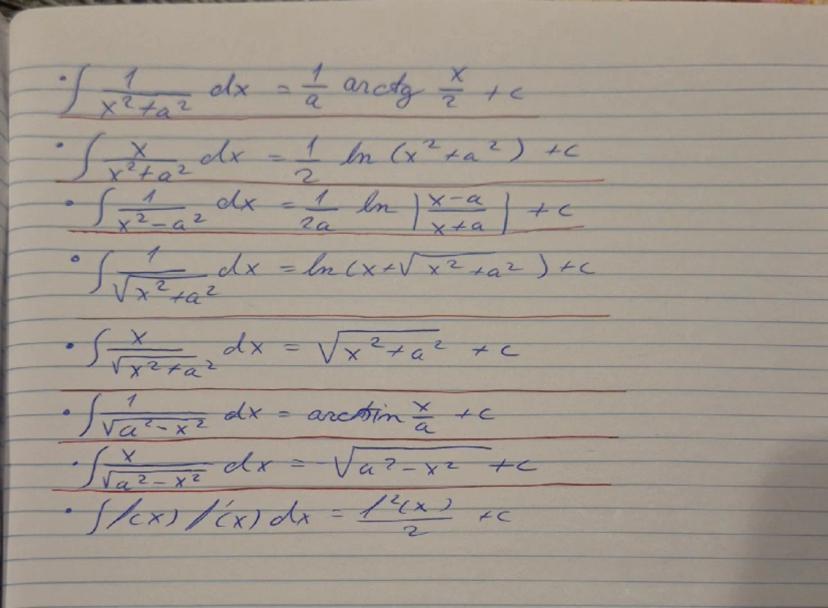 • ∫ 1/(x²+a²) dx = 1/a arctg x/2 + c
• ∫ x/(x²+a²) dx = 1/2 ln (x²+a²) + c
• ∫ 1/(x²-a²) dx = 1/2a ln |(x-a)/(x+a)| + c
• ∫ 1/√(x²+a²) dx = ln (x+√(x²+a²)) + c
• ∫ x/√(x²+a²) dx = √(x²+a²) + c
• ∫ 1/√(a²-x²) dx = arcsin x/a + c
• ∫ x/√(a²-x²) dx = -√(a²-x²) + c
• ∫ f(x) f'(x) dx = f²(x)/2 + c